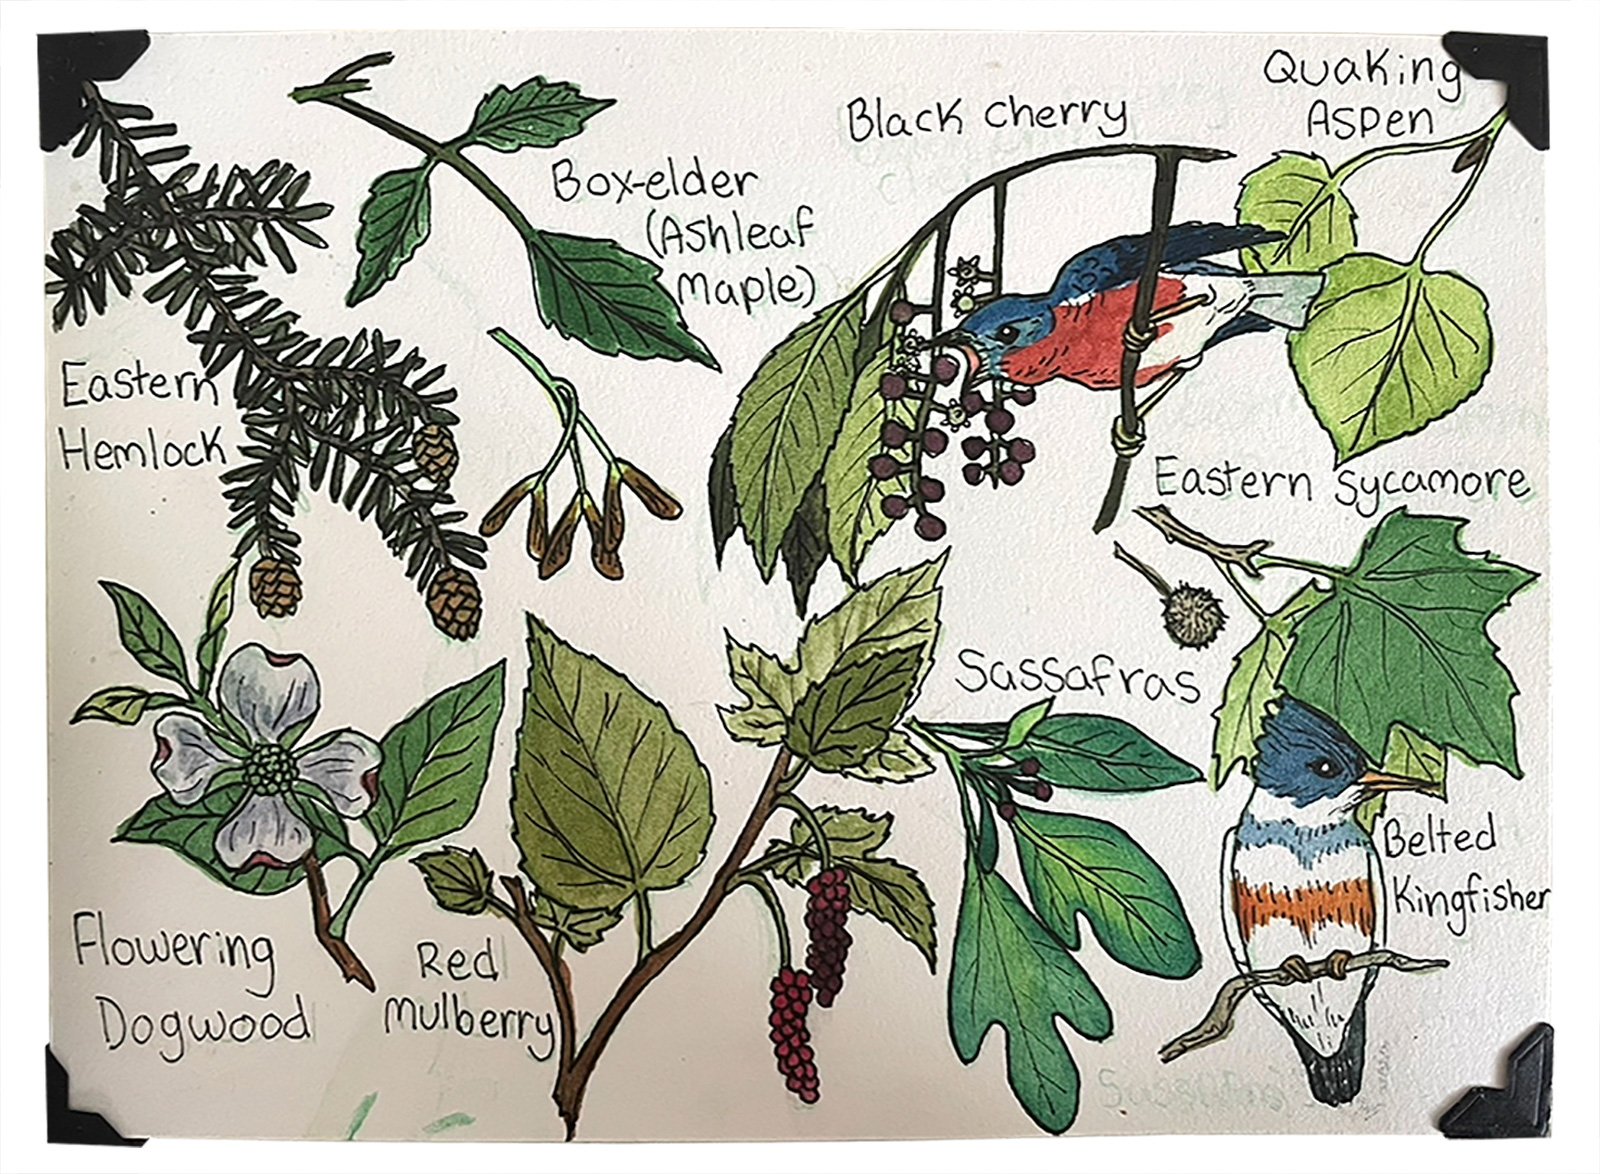 Quaking
Aspen
Black cherry
Box-elder
(Ashleaf
Maple)
Eastern
Hemlock
Eastern Sycamore
Sassafras
Belted
Kingfisher
Flowering
Dogwood
Red
Mulberry